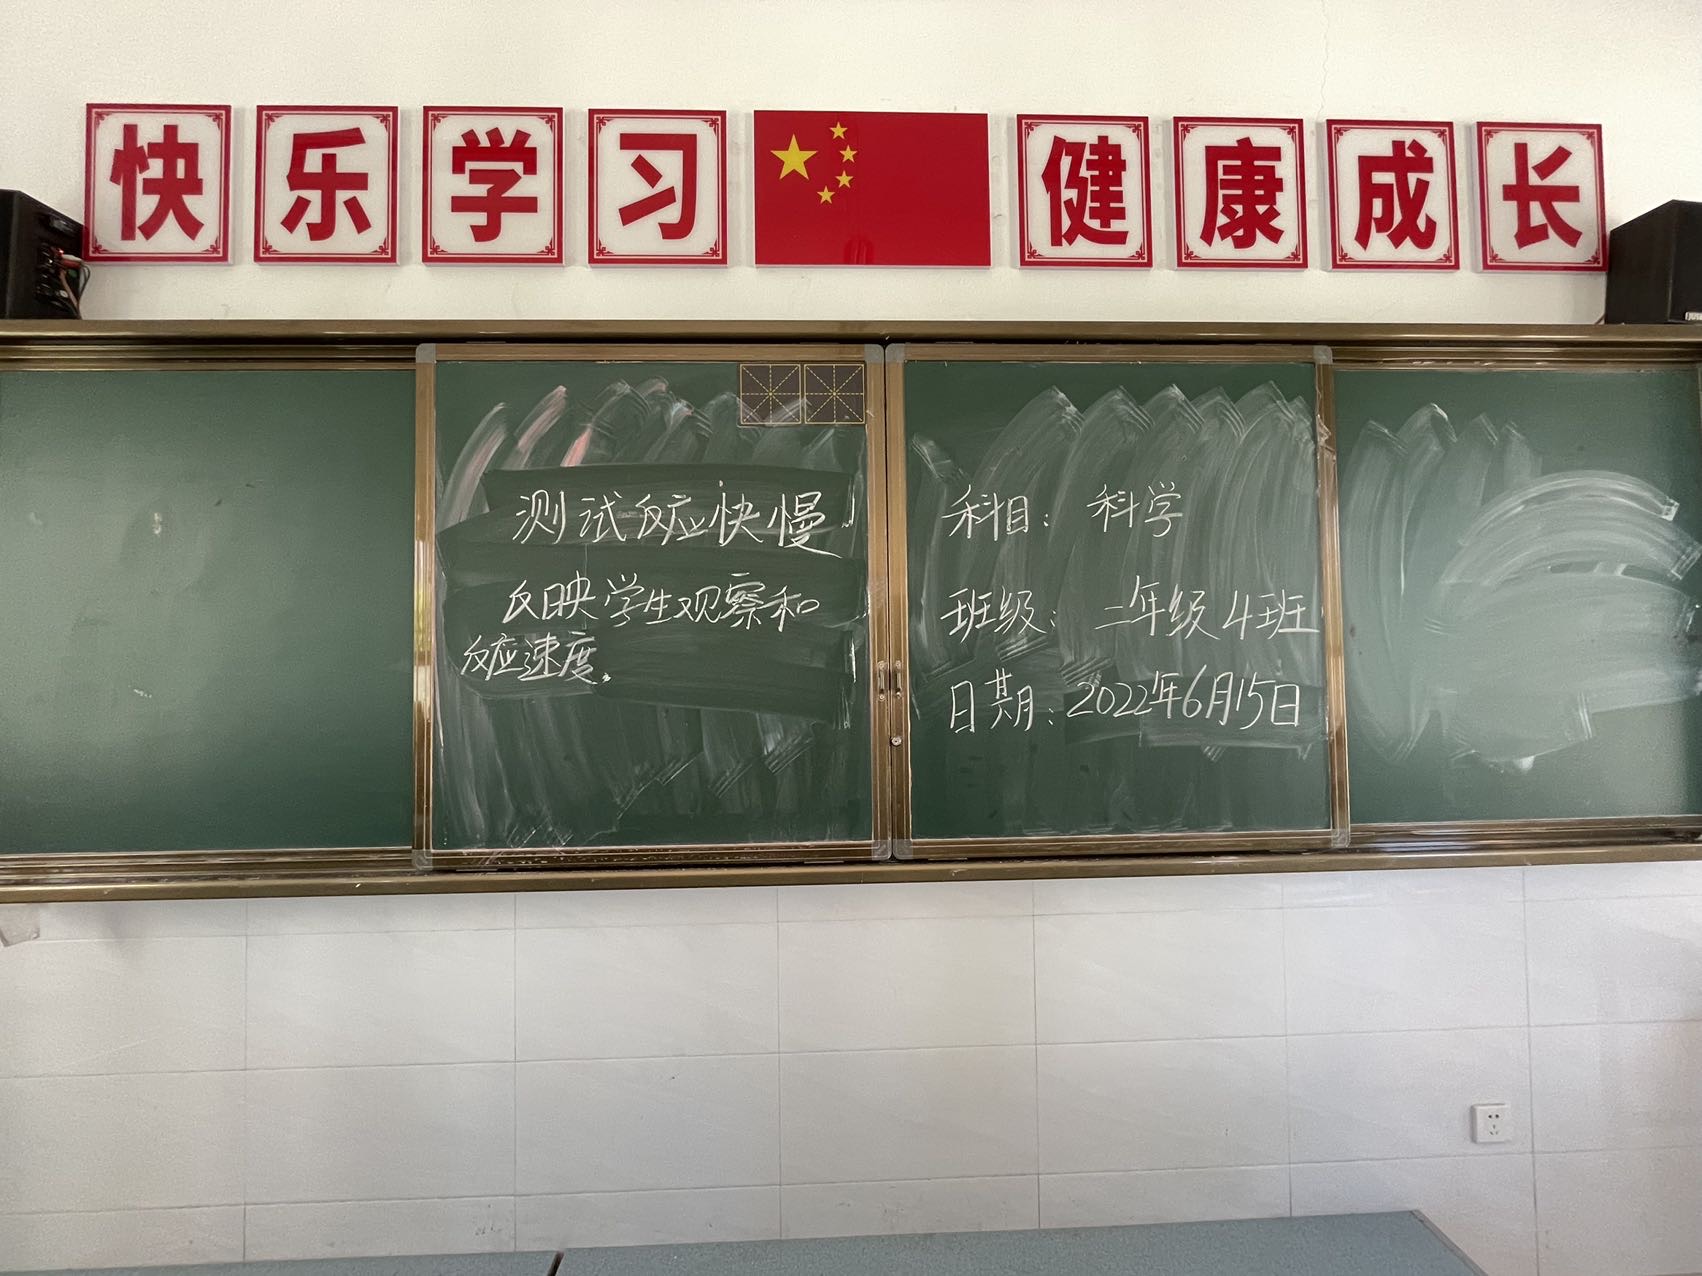 快乐学习 健康成长
测试反应快慢
反映学生观察和
反应速度。
科目：科学
班级：二年级4班
日期：2022年6月15日